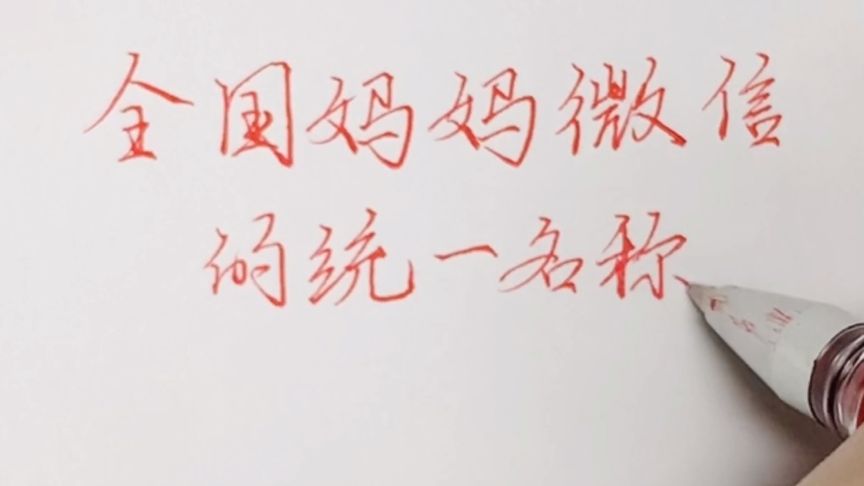 全国妈妈微信
的统一名称